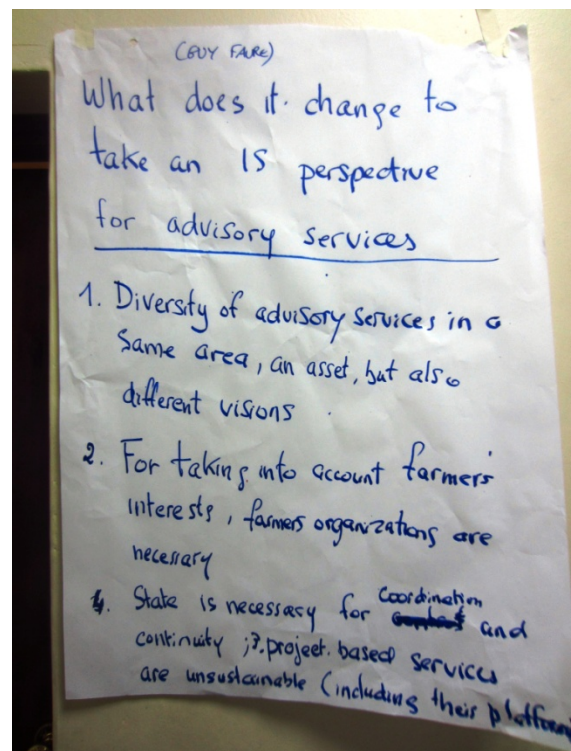 (GUY FAURE)
What does it change to
take an IS perspective
for advisory services
1. Diversity of advisory services in a
same area, an asset, but also
different visions
2. For taking into account farmers'
interests, farmers organizations are
necessary
4. State is necessary for coordination and
continuity; 3. project based services
are unsustainable (including their platform